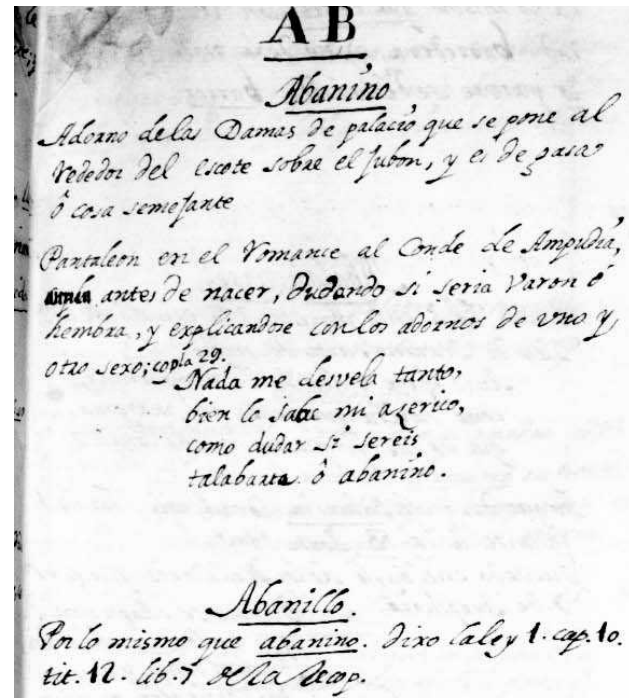 AB
Abanino
Adorno de las Damas de palacio que se pone al
rededor del escote sobre el Jubon, y es de gasa
ô cosa semejante
Pantaleon en el Romance al Conde de Ampudia,
antes de nacer, dudando si seria Varon ô
hembra, y explicandose con los adornos de vno y
otro sexo; copla 29.
Nada me desvela tanto,
bien lo sabe mi azerico,
como dudar si sereis
talabarte ô abanino.
Abanillo.
Por lo mismo que abanino. Dixo la ley 1. cap. 10.
tit. 12. lib. 7 de la Recop.